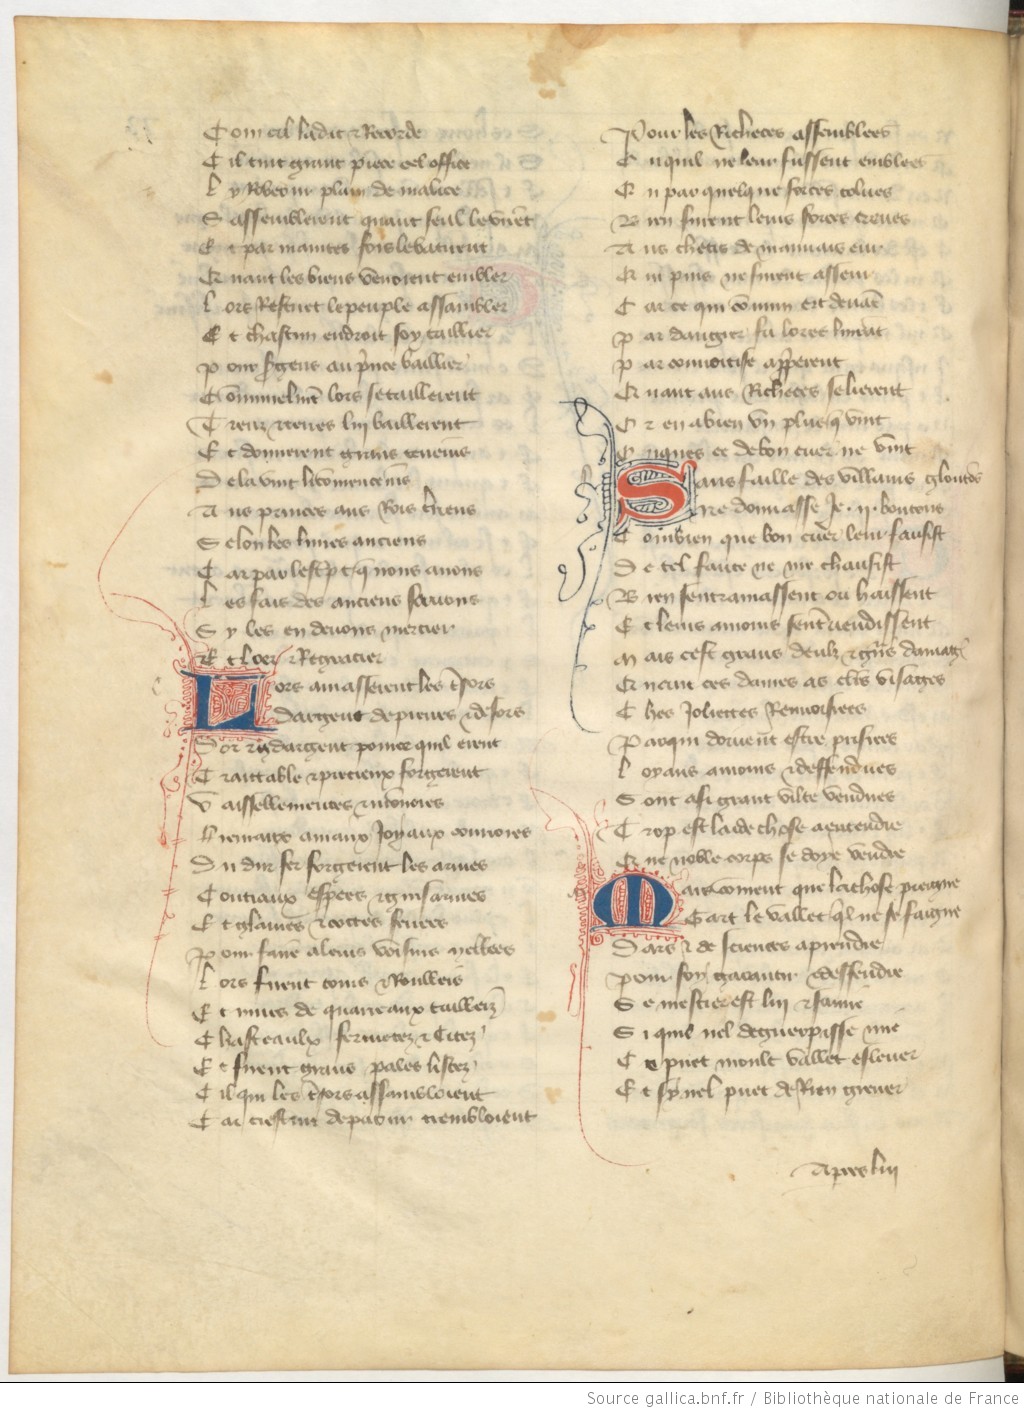 Com cil ladit & Recorde
Cil tint grant piece cel office
Ly Robeour plain de malice
Sassembleirent quant seul le virent
Et par maintes fois le batirent
Quant les biens venoient embler
Lors Restuet le peuple assambler
Et chascun endroit soy taillier
Pour sgens au prince baillier
Communelment lors se taillerent
Treuz & rentes luy baillerent
Et donnerent grans tenemens
De la vint li commencemens
Aus princes aus Rois terriens
Selon les livres anciens
Car par lescript que nous avons
Les fais des anciens savons
Sy les en devons mercier
Et loer & Regracier
Lors amasserent les tresors
Dargent de pierres & desors
Dor & dargent pource quil erent
Traittable & precieux forgerent
Vaissellementes & monnoies
Fremaux aniaux Joyaux connoies
Du dur fer forgerent les armes
Coutiaux espees & guisarmes
Et glaives & cottes ferrees
Pour faire a leurs voisins mellees
Lors firent tours & Roulleis
Et murs de quarreaux tailleiz
Chasteaulx fermetez & Citez
Et firent grans pales listez
Cil qui les tresors assambloient
Car trestuit de paour trembloient
Pour les Richeces assemblees
Ou quil ne leur fussent emblees
Ou par quelque forces tolues
Bien furent leurs forces creues
Aus chetis de mauvais eur
Qui puis ne furent asseur
Car ce qui commun ert devant
par dangier fu lores livrat
par convoitise apperent
Quant aus Richeces se lierent
Or en a bien un plus que vint
Oncques ce de bon cuer ne vint
Sans faille des villains gloutons
Ne donnasse Je .ii. boutons
Combien que bon cuer leur fausist
De tel faute ne me chausist
Bien sentramassent ou haissent
Et leurs amours sentrevendissent
Mais cest grans deulz & grans damage
Quant ces dames as clers visages
Ches Joliettes Renvoisiees
Par qui doivent estre prisiees
Loyaus amours & deffendues
Sont a si grant vilte vendues
Trop est laide chose a entendre
Que noble corps se doye vendre
Mais comment que la chose preigne
Gart le vallet quil ne se faigne
Dars & de sciences aprendre
pour soy garantir & deffendre
Se mestier est luy & samie
Si quil nel deguerpisse mie
Ce puet moult vallet eslever
Et sy nel puet de Rien grever
Apres luy
Source gallica.bnf.fr / Bibliothèque nationale de France